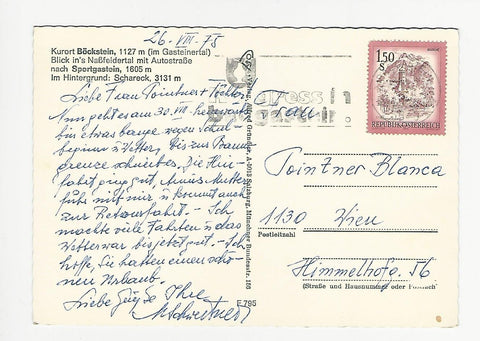 26. VIII. 75
Kurort Böckstein, 1127 m (im Gasteinertal)
Blick in's Naßfeldertal mit Autostraße
nach Sportgastein, 1605 m
Im Hintergrund: Schareck, 3131 m
Liebe Frau Pointner
geht es am 30. VIII.
bin etwas bange wegen Schul-
beginn u. Wetter. Bis zur
grenze schneibts. Die Hin-
fahrt ging gut, Mutter
fuhr mit mir u. kommt auch
zur Retourfahrt. - Ich
machte viel Fahrten u. das
Wetter war bis jetzt gut. - Ich
hoffe, Sie hatten einen schö-
nen Urlaub.
Liebe Grüße Ihre
F 795
A-5012 Salzburg, Münchner Bundesstr. 165
1.50
S
REPUBLIK ÖSTERREICH
Frau
Pointner Blanca
1130 Wien
Postleitzahl
Himmelhofg. 56
(Straße und Hausnummer oder Postfach)